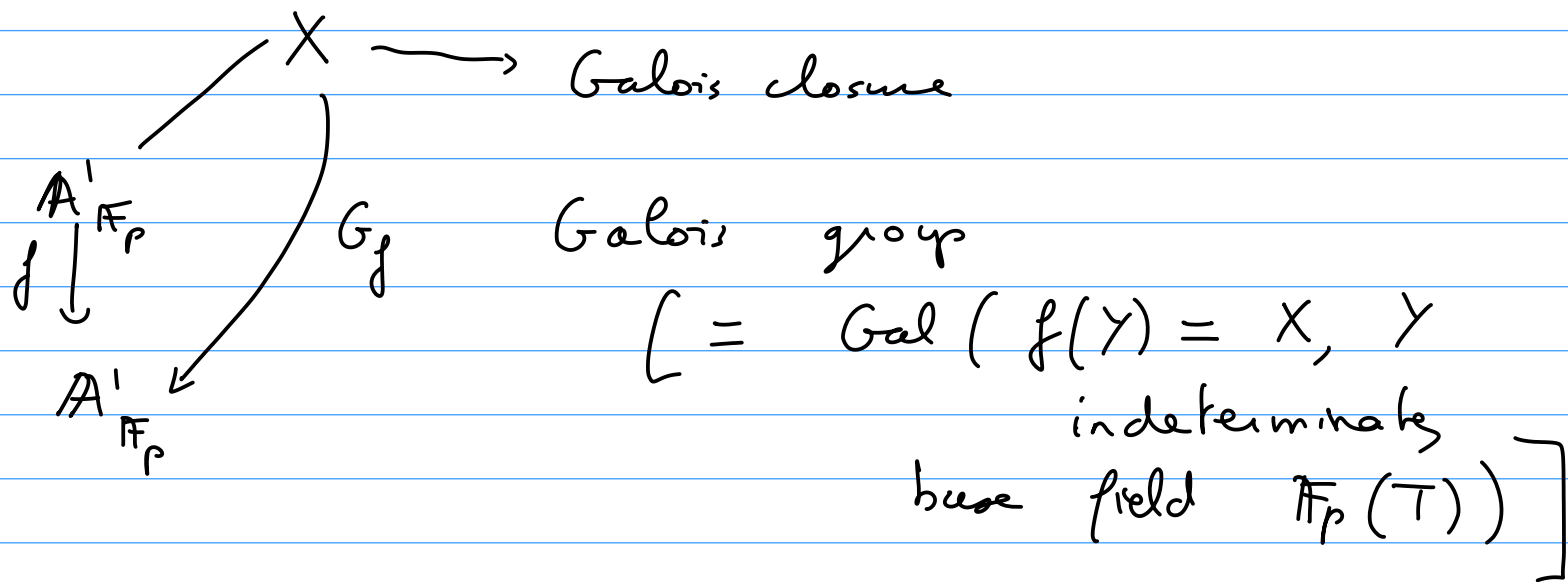 X → Galois closure
A¹_{F_p}
f ↓ G_f Galois group
[ = Gal ( f(Y) = X, Y
A¹_{F_p} indeterminates
base field F_p(T) ) ]